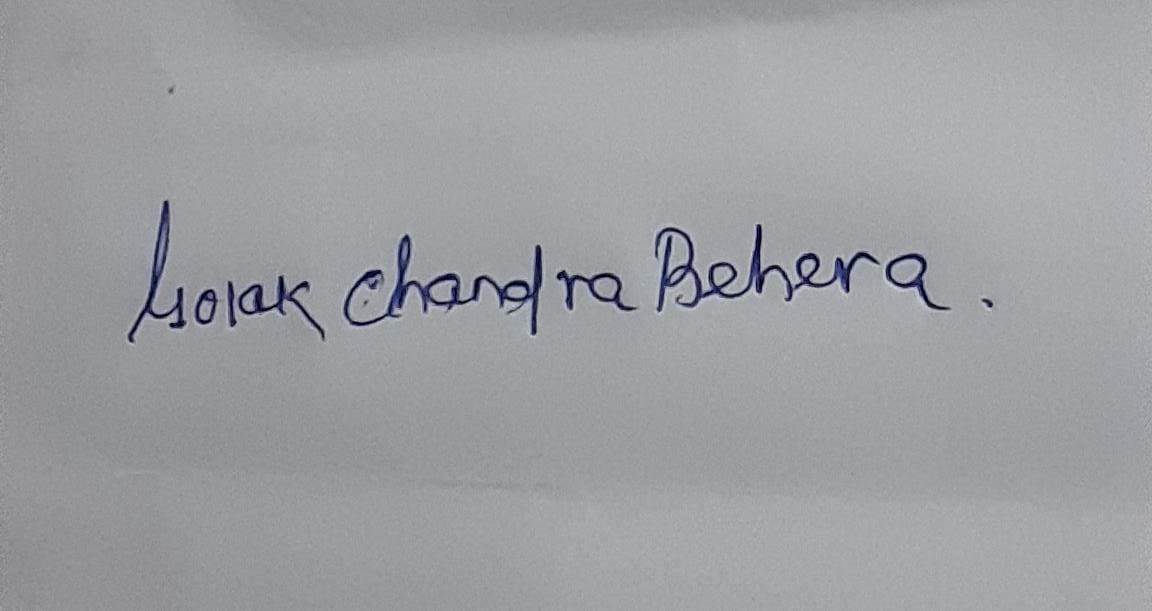 Golak Chandra Behera.